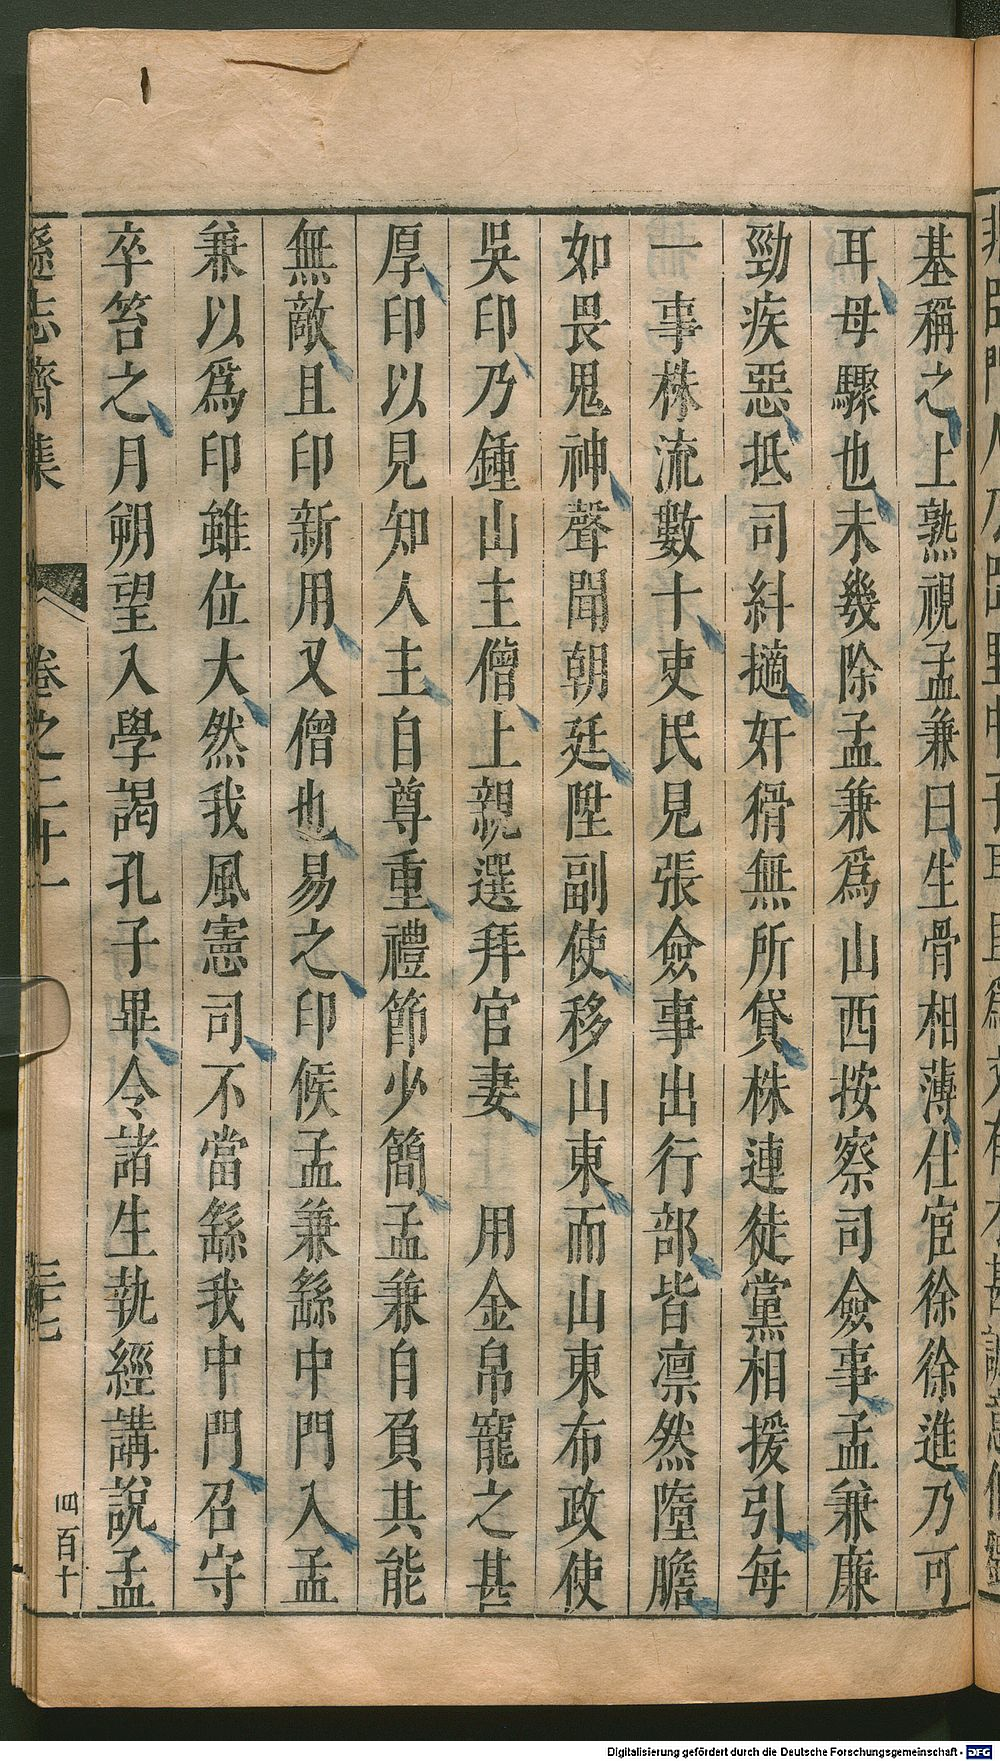 基稱之上熟視孟兼曰生骨相薄仕宦徐徐進乃可
耳母驟也未幾除孟兼爲山西按察司僉事孟兼廉
勁疾惡抵司糾擿奸猾無所貸株連徒黨相援引每
一事株流數十吏民見張僉事出行部皆凛然墮膽
如畏鬼神聲聞朝廷陞副使移山東而山東布政使
吳印乃鍾山主僧上親選拜官妻 用金帛寵之甚
厚印以見知人主自尊重禮節少簡孟兼自負其能
無敵且印新用又僧也易之印候孟兼繇中門入孟
兼以爲印雖位大然我風憲司不當繇我中門召守
卒笞之月朔望入學謁孔子畢令諸生執經講說孟
遜志齋集 卷之二十一 三十七
四百十
Digitalisierung gefördert durch die Deutsche Forschungsgemeinschaft - DFG